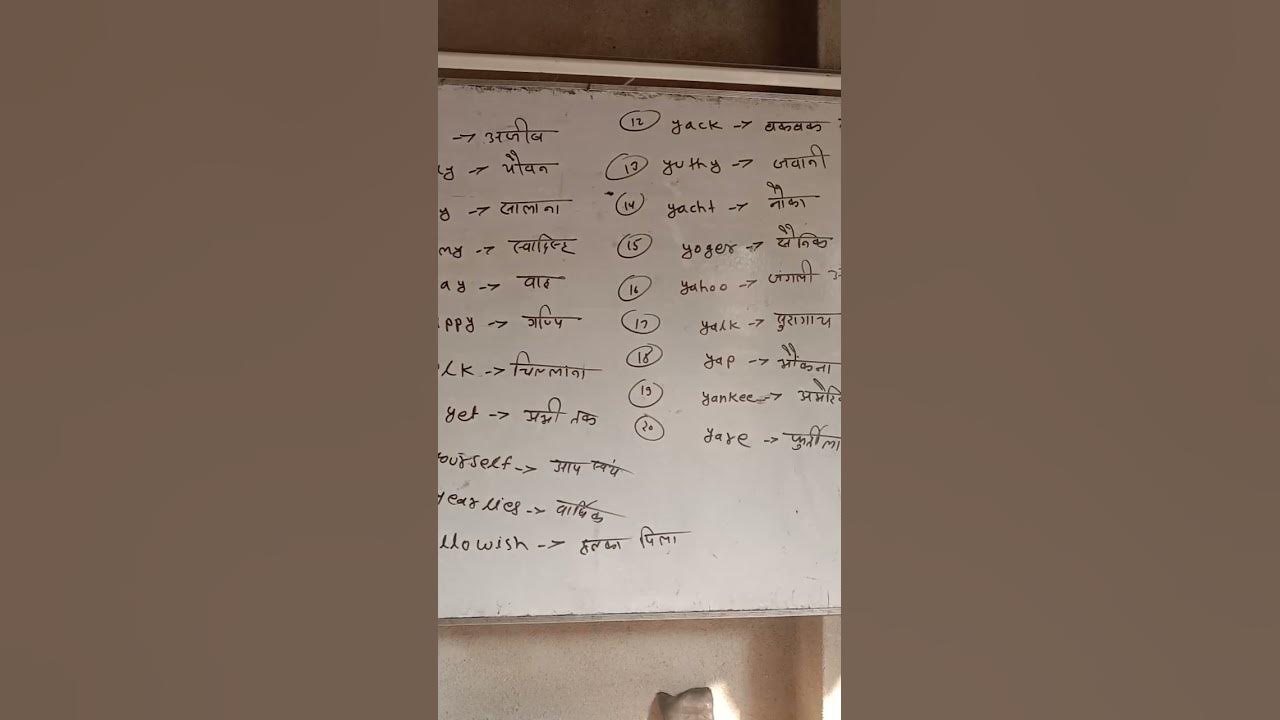 → अजीब
y → यौवन
y → सालाना
my → स्वादिष्ट
ay → वाह
ppy → गप्पि
lk → चिल्लाना
yet → अभी तक
ourself → आप स्वंय
yearlies → वार्षिक
llowish → हल्का पिला
12 yack → बकबक
13 yuthy → जवानी
14 yacht → नौका
15 yoger → सैनिक
16 yahoo → जंगली
17 yalk → सुरागाय
18 yap → भौंकना
19 yankee → अमेरि
20 yare → फुर्तीला